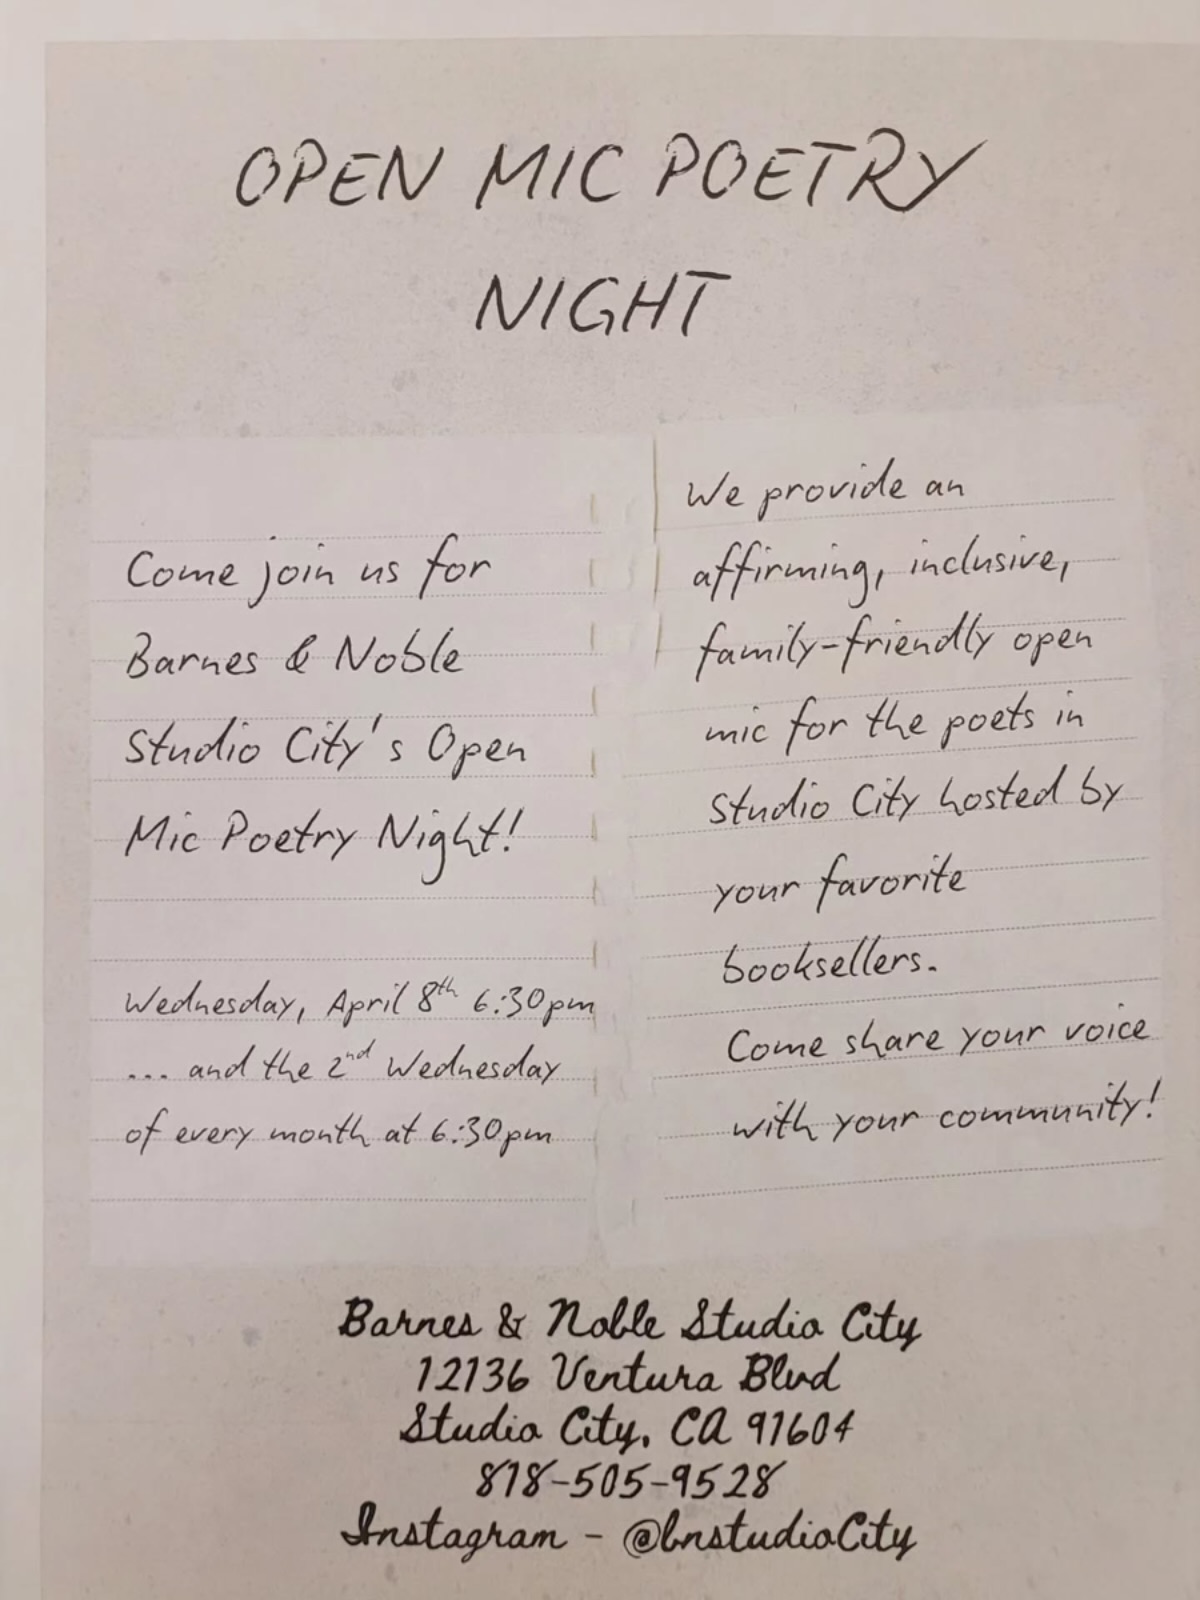 OPEN MIC POETRY
NIGHT
Come join us for
Barnes & Noble
Studio City's Open
Mic Poetry Night!
Wednesday, April 8th 6:30pm
... and the 2nd Wednesday
of every month at 6:30pm
We provide an
affirming, inclusive,
family-friendly open
mic for the poets in
Studio City hosted by
your favorite
booksellers.
Come share your voice
with your community!
Barnes & Noble Studio City
12136 Ventura Blvd
Studio City, CA 91604
818-505-9528
Instagram - @bnstudioCity